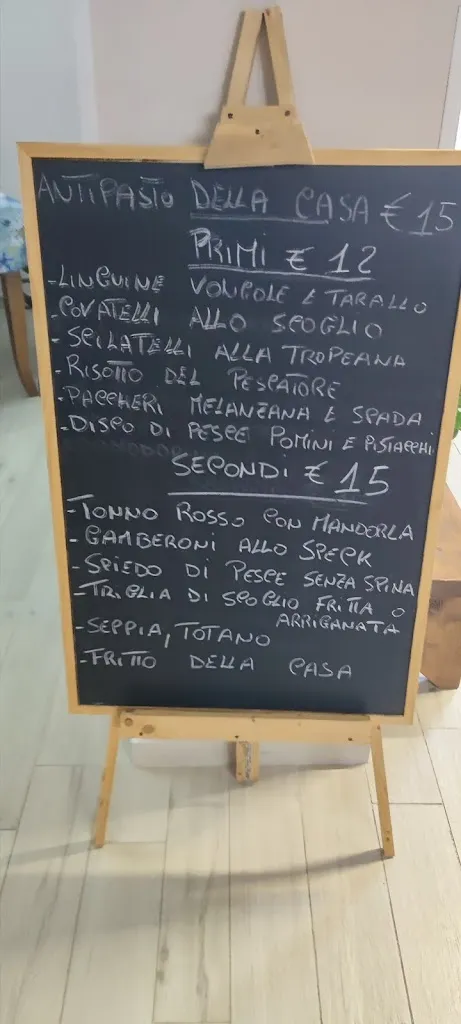 ANTIPASTO DELLA CASA € 15
PRIMI € 12
-LINGUINE VONGOLE E TARALLO
-COVATELLI ALLO SCOGLIO
-SCILATELLI ALLA TROPEANA
-RISOTTO DEL PESCATORE
-PACCHERI MELANZANA E SPADA
-DISCO DI PESCE POMINI E PISTACCHI
SECONDI € 15
-TONNO ROSSO CON MANDORLA
-GAMBERONI ALLO SPECK
-SPIEDO DI PESCE SENZA SPINA
-TRIGLIA DI SCOGLIO FRITTA O
ARRIGANATA
-SEPPIA, TOTANO
-FRITTO DELLA CASA